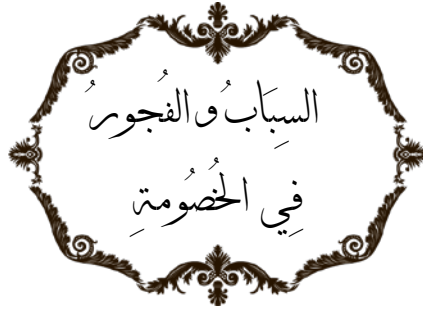 السِبَابُ والفُجورُ
فِي الخُصُومةِ